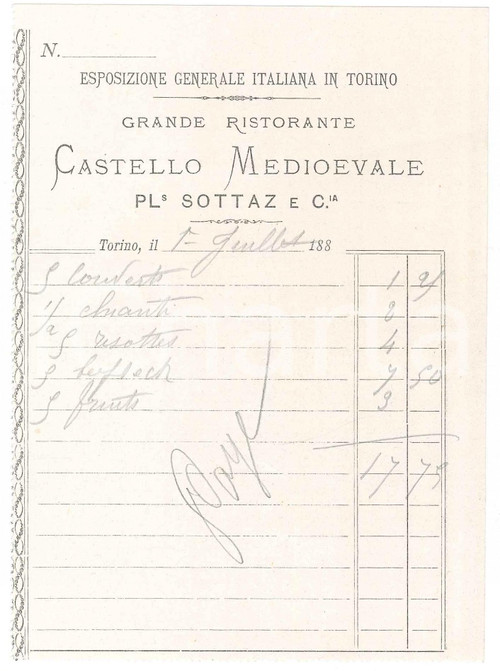 N.
ESPOSIZIONE GENERALE ITALIANA IN TORINO
GRANDE RISTORANTE
CASTELLO MEDIOEVALE
PLs SOTTAZ E C.IA
Torino, il 1- Juillet 188
5 couverts 1 25
1/2 chianti 2
5 risottes 4
5 bifteck 7 50
5 fruits 3
17 75
Payé